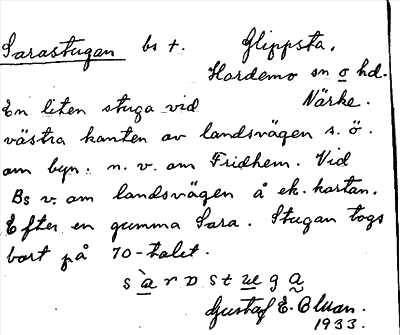 Sarastugan bs t. Glippsta,
Hardemo sn o hd.
En liten stuga vid Närke.
västra kanten av landsvägen s. ö.
om byn. n. v. om Fridhem. Vid
Bs v. om landsvägen å ek. kartan.
Efter en gumma Sara. Stugan togs
bort på 70-talet.
Gustaf E.
1933.